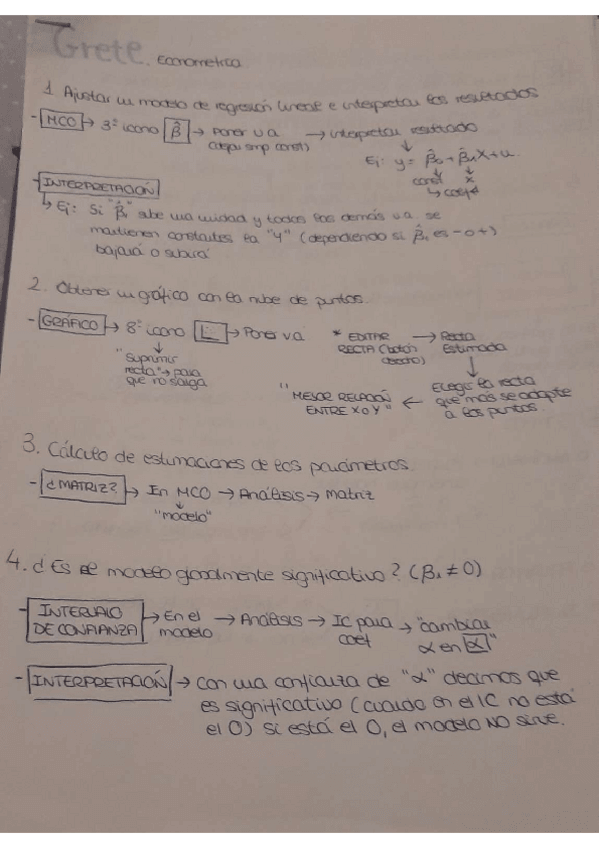 Grete. Econometrica
1. Ajustar un modelo de regresión lineal e interpretar los resultados
- MCO → 3º icono β̂ → Poner va → interpretar resultado
(dep. const)
Ej: y = β̂₀ + β̂₁X + u.
const x
↳ coef
- INTERPRETACIÓN
↳ Ej: Si "β̂₁" sube una unidad y todas las demás v.a. se
mantienen constantes la "y" (dependiendo si β̂₁ es - o +)
bajará o subirá
2. Obtener un gráfico con la nube de puntos.
- GRÁFICO → 8º icono → Poner va * EDITAR → Recta
RECTA (botón derecho) Estimada
"Suprimir
recta" → para
que no salga
Elegir la recta
que más se adapte
a los puntos.
"MEJOR RELACIÓN ←
ENTRE X o Y"
3. Cálculo de estimaciones de los parámetros.
- ¿MATRIZ? → En MCO → Análisis → matriz
"modelo"
4. ¿Es el modelo globalmente significativo? (β₁ ≠ 0)
- INTERVALO DE CONFIANZA → En el modelo → Análisis → IC para coef → "cambiar α en α"
- INTERPRETACIÓN → Con una confianza de "α" decimos que
es significativo (cuando en el IC no está
el 0) si está el 0, el modelo NO sirve.